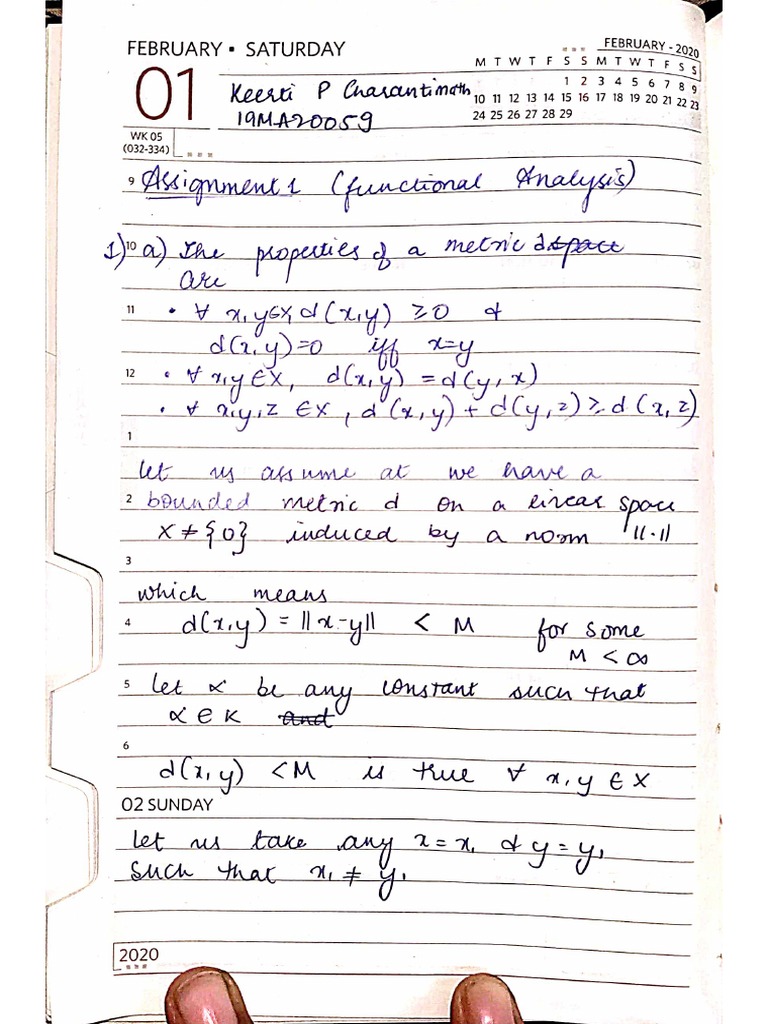 FEBRUARY • SATURDAY
FEBRUARY - 2020
M T W T F S S M T W T F S S
1 2 3 4 5 6 7 8 9
10 11 12 13 14 15 16 17 18 19 20 21 22 23
24 25 26 27 28 29
01
Keerti P Charantimath
19MA20059
WK 05
(032-334)
9 Assignment 1 (functional Analysis)
1) 10 a) The properties of a metric d space
are
11 • ∀ x,y∈X, d(x,y) ≥0 &
d(x,y)=0 iff x=y
12 • ∀ x,y ∈X, d(x,y) = d(y,x)
• ∀ x,y,z ∈X, d(x,y) + d(y,z) ≥ d(x,z)
1
let us assume at we have a
2 bounded metric d on a linear space
X ≠ {0} induced by a norm ||·||
3
which means
4 d(x,y) = ||x-y|| < M for some
M < ∞
5 let α be any constant such that
α ∈ K and
6
d(x,y) <M is true ∀ x,y ∈ X
02 SUNDAY
let us take any x = x₁ & y = y₁
such that x₁ ≠ y₁
2020